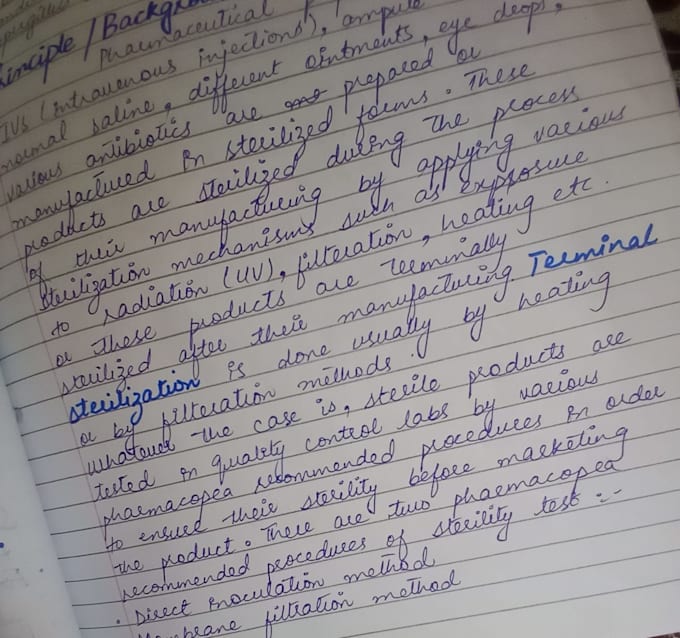 Principle / Background
Pharmaceutical
IVs (intravenous injections), ampule
normal saline, different ointments, eye drops,
various antibiotics are prepared or
manufactured in sterilized forms. These
products are sterilized during the process
of their manufacturing by applying various
sterilization mechanisms such as exposure
to radiation (UV), filteration, heating etc.
or these products are terminally
sterilized after their manufacturing. Terminal
sterilization is done usually by heating
or by filteration methods.
Whatever the case is, sterile products are
tested in quality control labs by various
pharmacopea recommended procedures in order
to ensure their sterility before marketing
the product. There are two pharmacopea
recommended procedures of sterility test :-
• Direct inoculation method
Membrane filtration method